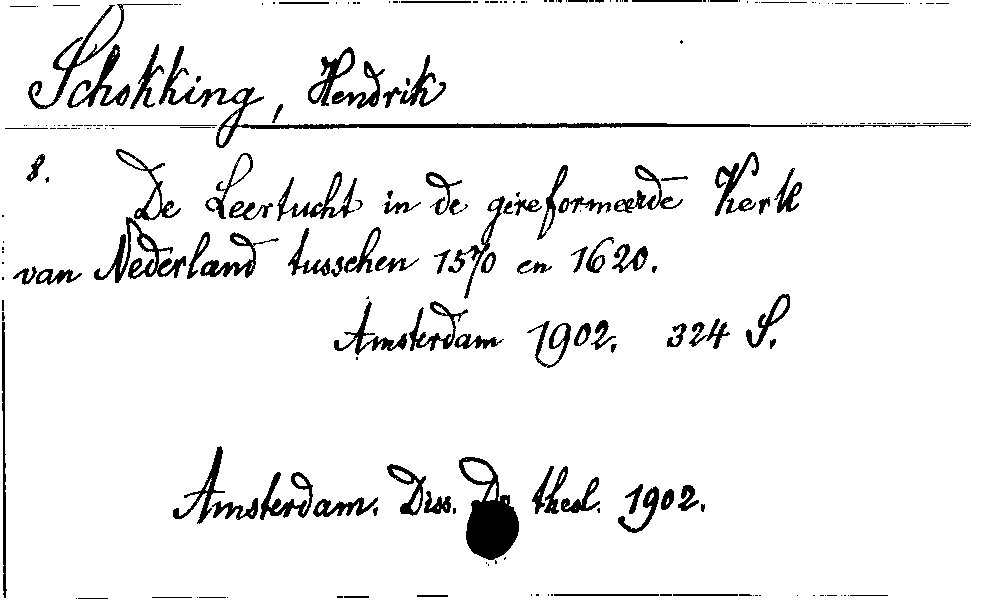 Schokking, Hendrik
8. De Leertucht in de gereformeerde Kerk
van Nederland tusschen 1570 en 1620.
Amsterdam 1902. 324 S.
Amsterdam. Diss. Dr. theol. 1902.